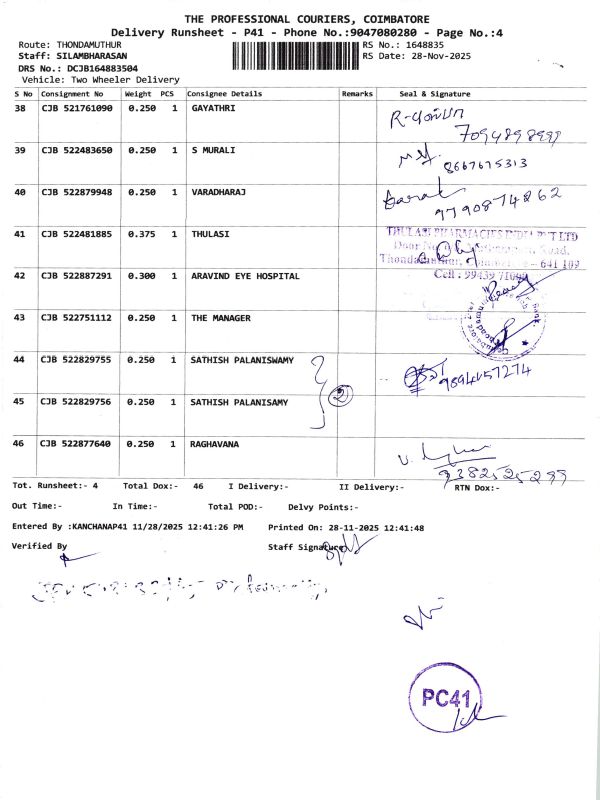 THE PROFESSIONAL COURIERS, COIMBATORE
Delivery Runsheet - P41 - Phone No.:9047080280 - Page No.:4
Route: THONDAMUTHUR RS No.: 1648835
Staff: SILAMBHARASAN RS Date: 28-Nov-2025
DRS No.: DCJB164883504
Vehicle: Two Wheeler Delivery
S No Consignment No Weight PCS Consignee Details Remarks Seal & Signature
38 CJB 521761090 0.250 1 GAYATHRI
7094898999
39 CJB 522483650 0.250 1 S MURALI
8667675313
40 CJB 522879948 0.250 1 VARADHARAJ
9790874862
41 CJB 522481885 0.375 1 THULASI THULASI PHARMACIES INDIA PVT LTD
Door No. Road,
Thondamuthur, Coimbatore - 641 109
42 CJB 522887291 0.300 1 ARAVIND EYE HOSPITAL Cell : 99439
43 CJB 522751112 0.250 1 THE MANAGER
44 CJB 522829755 0.250 1 SATHISH PALANISWAMY
2
45 CJB 522829756 0.250 1 SATHISH PALANISAMY
46 CJB 522877640 0.250 1 RAGHAVANA
9382525299
Tot. Runsheet:- 4 Total Dox:- 46 I Delivery:- II Delivery:- RTN Dox:-
Out Time:- In Time:- Total POD:- Delvy Points:-
Entered By :KANCHANAP41 11/28/2025 12:41:26 PM Printed On: 28-11-2025 12:41:48
Verified By Staff Signature
PC41